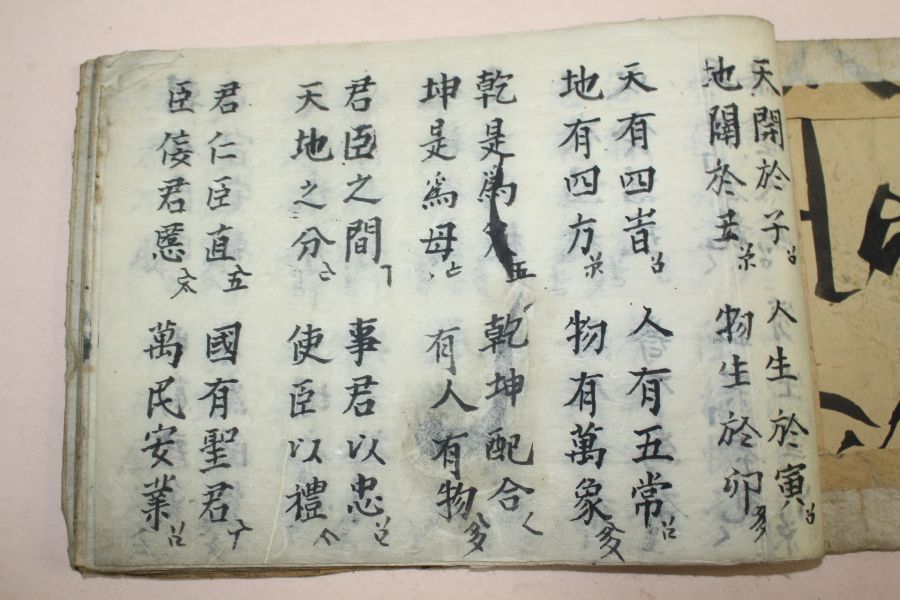 天開於子
地闢於丑
人生於寅
物生於卯
天有四旹
地有四方
人有五常
物有萬象
乾是爲父
坤是爲母
乾坤配合
有人有物
君臣之間
天地之分
事君以忠
使臣以禮
君仁臣直
臣佞君慝
國有聖君
萬民安業